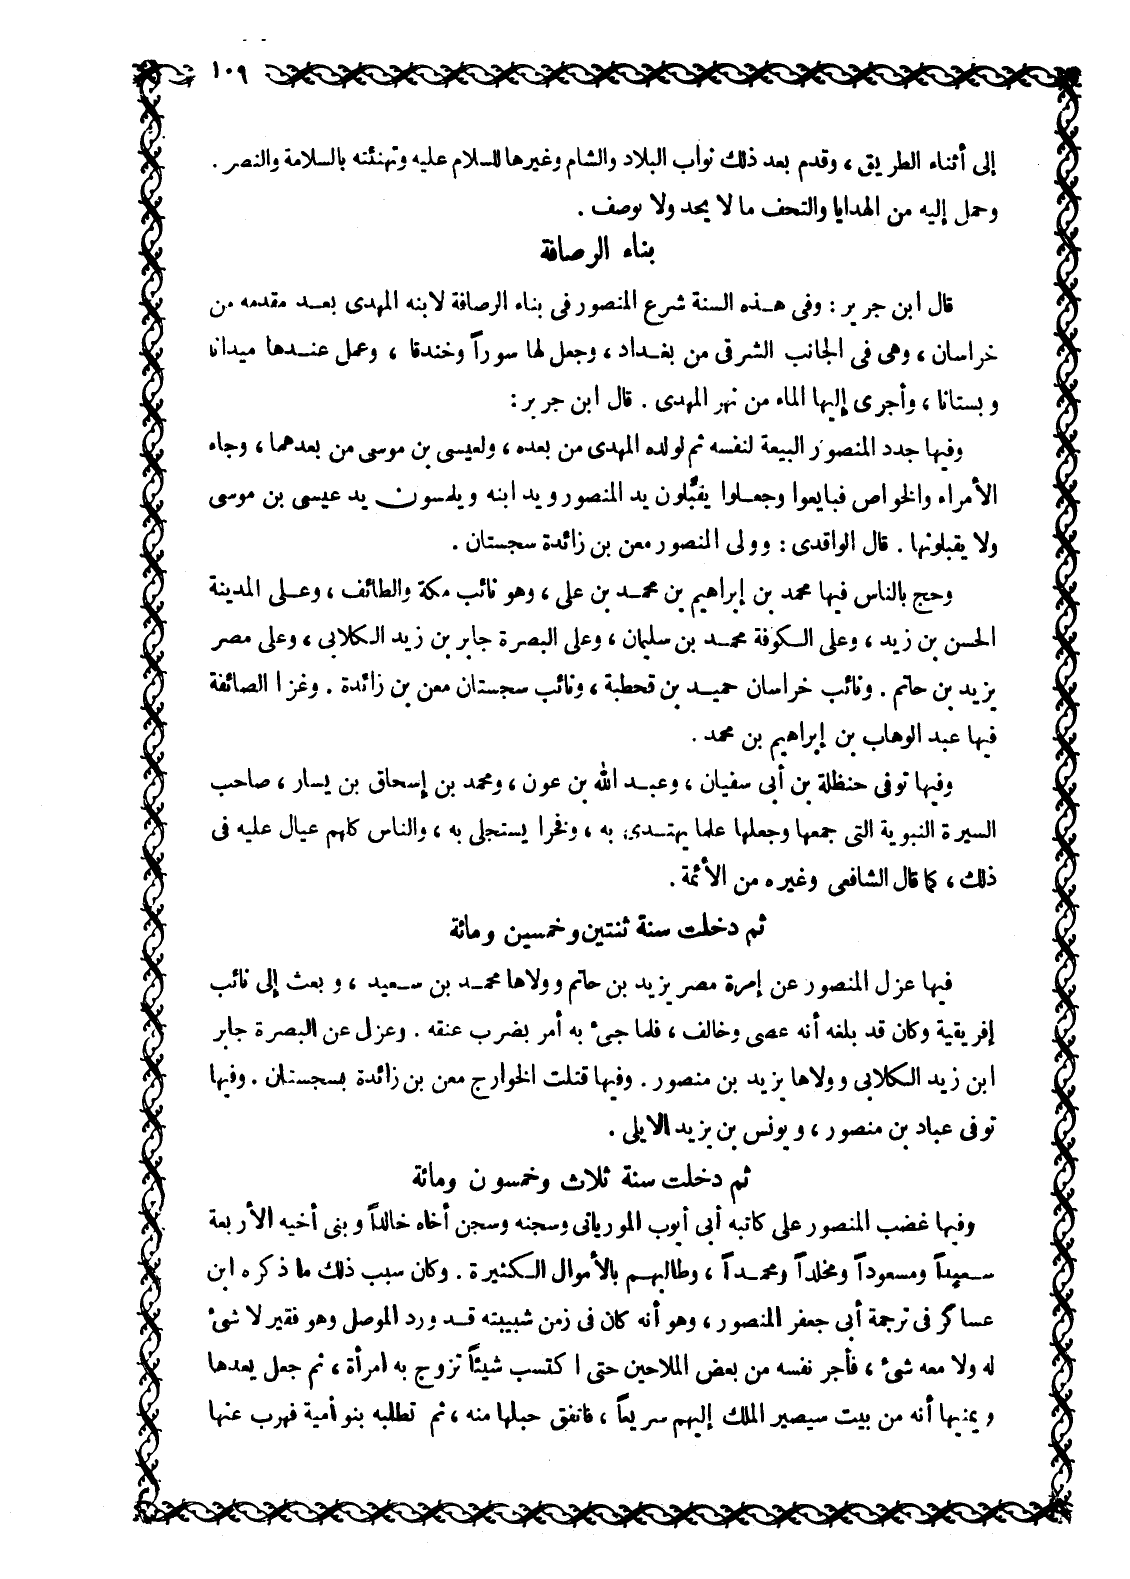 ١٠٩
إلى أثناء الطريق ، وقدم بعد ذلك نواب البلاد والشام وغيرها للسلام عليه وتهنئته بالسلامة والنصر .
وحمل إليه من الهدايا والتحف ما لا يحد ولا يوصف .
بناء الرصافة
قال ابن جرير : وفى هذه السنة شرع المنصور فى بناء الرصافة لابنه المهدى بعد مقدمه من
خراسان ، وهى فى الجانب الشرقى من بغداد ، وجعل لها سوراً وخندقا ، وعمل عندها ميدانا
وبستانا ، وأجرى إليها الماء من نهر المهدى . قال ابن جرير :
وفيها جدد المنصور البيعة لنفسه ثم لولده المهدى من بعده ، ولعيسى بن موسى من بعدهما ، وجاء
الأمراء والخواص فبايعوا وجعلوا يقبّلون يد المنصور ويد ابنه ويلمسون يد عيسى بن موسى
ولا يقبلونها . قال الواقدى : وولى المنصور معن بن زائدة سجستان .
وحج بالناس فيها محمد بن إبراهيم بن محمد بن على ، وهو نائب مكة والطائف ، وعلى المدينة
الحسن بن زيد ، وعلى الكوفة محمد بن سليمان ، وعلى البصرة جابر بن زيد الكلابى ، وعلى مصر
يزيد بن حاتم . ونائب خراسان حميد بن قحطبة ، ونائب سجستان معن بن زائدة . وغزا الصائفة
فيها عبد الوهاب بن إبراهيم بن محمد .
وفيها توفى حنظلة بن أبى سفيان ، وعبد الله بن عون ، ومحمد بن إسحاق بن يسار ، صاحب
السيرة النبوية التى جمعها وجعلها علما يهتدى به ، وفخرا يستجلى به ، والناس كلهم عيال عليه فى
ذلك ، كما قال الشافعى وغيره من الأئمة .
ثم دخلت سنة ثنتين وخمسين ومائة
فيها عزل المنصور عن إمرة مصر يزيد بن حاتم وولاها محمد بن سعيد ، وبعث إلى نائب
إفريقية وكان قد بلغه أنه عصى وخالف ، فلما جىء به أمر بضرب عنقه . وعزل عن البصرة جابر
ابن زيد الكلابى وولاها يزيد بن منصور . وفيها قتلت الخوارج معن بن زائدة بسجستان . وفيها
توفى عباد بن منصور ، ويونس بن يزيد الايلى .
ثم دخلت سنة ثلاث وخمسون ومائة
وفيها غضب المنصور على كاتبه أبى أيوب الموريانى وسجنه وسجن أخاه خالداً وبنى أخيه الأربعة
سعيداً ومسعوداً ومخلداً ومحمداً ، وطالبهم بالأموال الكثيرة . وكان سبب ذلك ما ذكره ابن
عساكر فى ترجمة أبى جعفر المنصور ، وهو أنه كان فى زمن شبيبته قد ورد الموصل وهو فقير لا شىء
له ولا معه شىء ، فأجر نفسه من بعض الملاحين حتى اكتسب شيئاً تزوج به امرأة ، ثم جعل يعدها
ويمنيها أنه من بيت سيصير الملك إليهم سريعاً ، فاتفق حبلها منه ، ثم تطلبه بنو أمية فهرب عنها